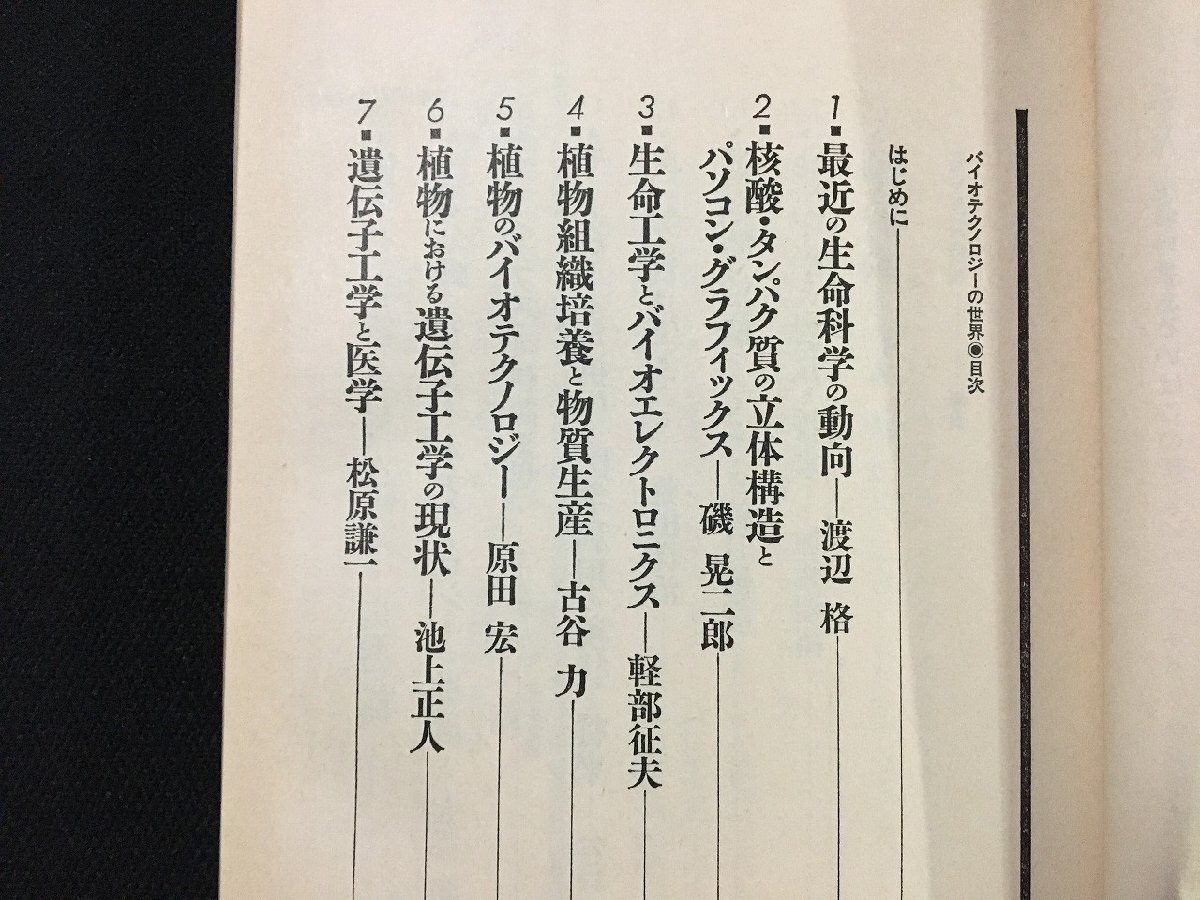 バイオテクノロジーの世界◉目次
はじめに
1■最近の生命科学の動向―渡辺 格
2■核酸・タンパク質の立体構造と
パソコン・グラフィックス―磯 晃二郎
3■生命工学とバイオエレクトロニクス―軽部征夫
4■植物組織培養と物質生産―古谷 力
5■植物のバイオテクノロジー―原田 宏
6■植物における遺伝子工学の現状―池上正人
7■遺伝子工学と医学―松原謙一